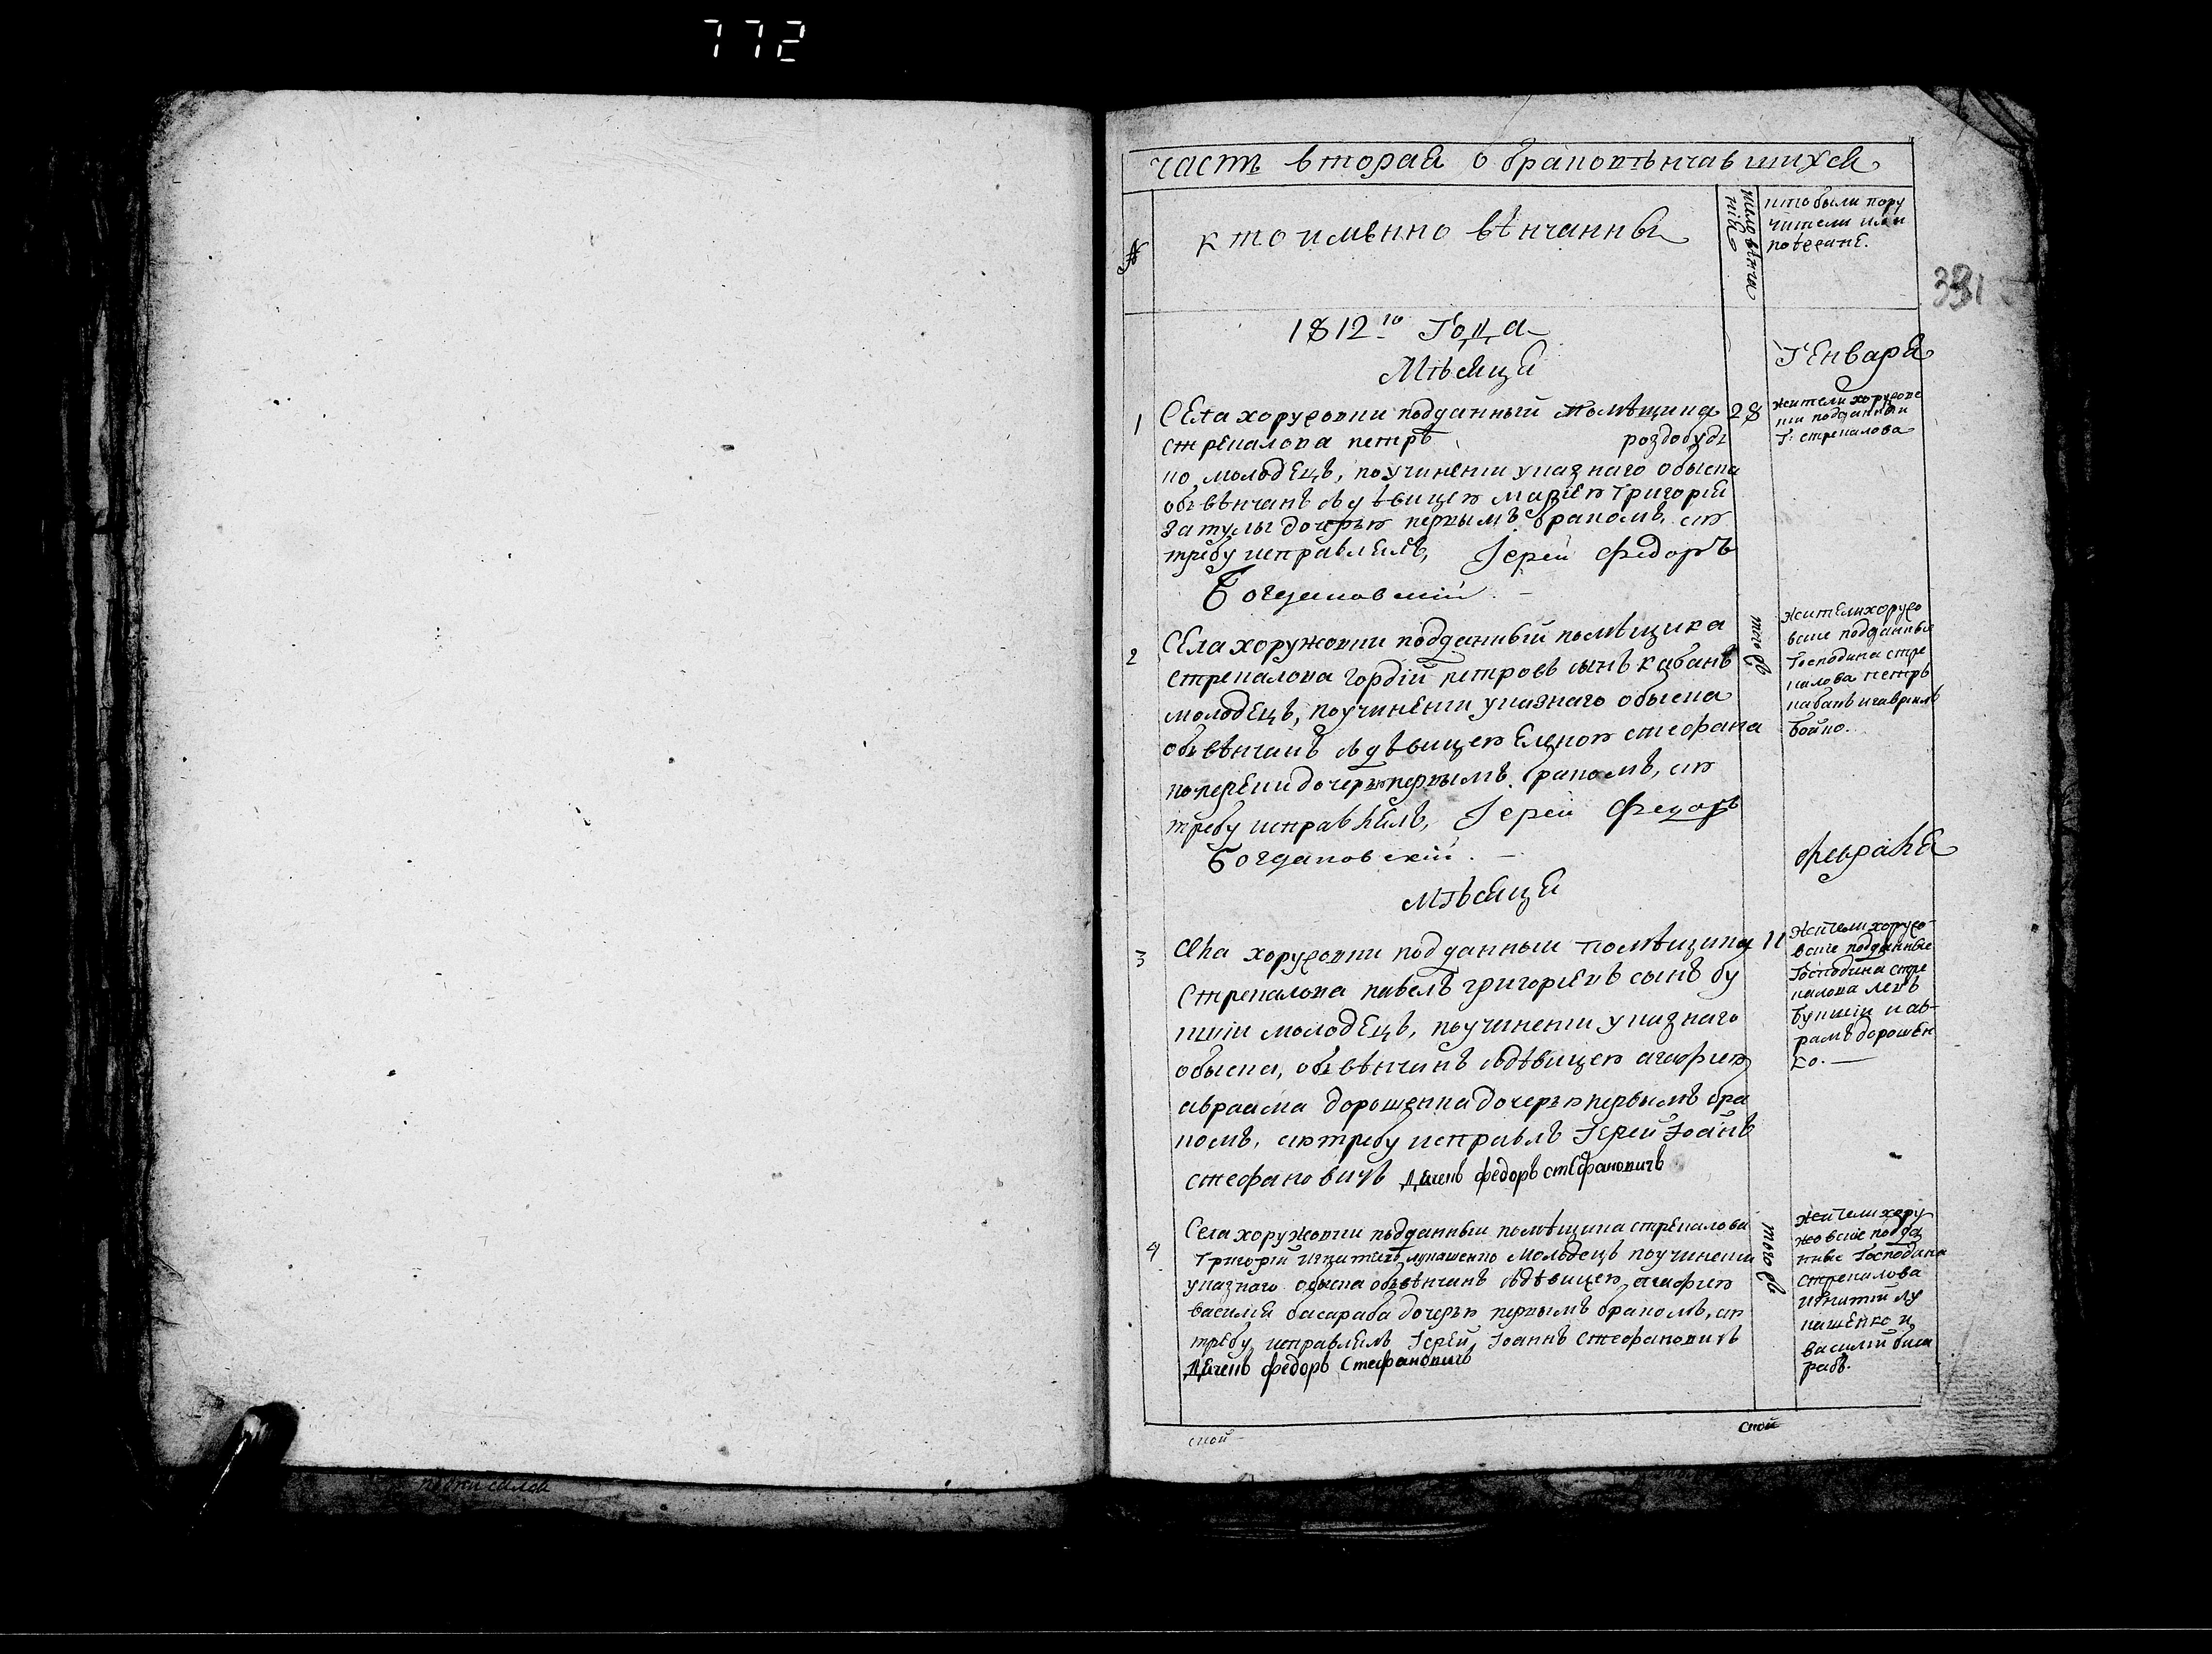 772
часть вторая о бракоπѣнчавшихся
№
кто имѣнно вѣнчанны
число вѣнча
нія
кто были пору
чители или
поѣзжане.
391
1812го Года
Мѣсяця
Генваря
1
Села хоружовки подданный помѣщика
стрекалова петръ роздобудь
ко молодецъ, поучинении указнаго обыска
объвѣнчанъ здѣвицею мариею григорія
затулы дочерью первымъ бракомъ, сию
требу исправлялъ, Іерей Федоръ
Богдановский
28
жители хоружов
кіи подданныи
Г: стрекалова
2
Села хоружовки подданный помѣщика
стрекалова гордій петровъ сынъ кабанъ
молодецъ, поучинении указнаго обыска
объвѣнчанъ здѣвицею Еленою стефана
дочерью первымъ бракомъ, сию
требу исправлялъ, Іерей Федоръ
Богдановский
того ж
жители хоружо
вские подданные
Господина стре
калова петръ
кабанъ игаврилъ
бойко.
Мѣсяця
Февраля
3
Села хоружовки подданный помѣщика
Стрекалова павелъ григориевъ сынъ бу
цкій молодецъ, поучинении указнаго
обыска, объвѣнчанъ здѣвицею агафиею
авраама дорошенка дочерью первымъ бра
комъ, сию требу исправлъ Іерей Іоаннъ
стефановичъ Дячекъ федоръ стефановичъ
11
жители хоружо
вские подданные
Господина стре
калова левъ
буцкій и ав-
рамъ дорошен
ко.
4
Села хоружовки подданный помѣщика стрекалова
Григорій игнатиевъ лукашенко молодецъ поучинении
указнаго обыска объвѣнчанъ здѣвицею агафиею
василия басараба дочерью первымъ бракомъ, сию
требу исправлялъ Іерей Іоаннъ Стефановичъ
Дячекъ федоръ Стефановичъ
того ж
жители хору
жовские подда
нные Господина
стрекалова
игнатий лу
кашенко и
василий баса
рабъ.